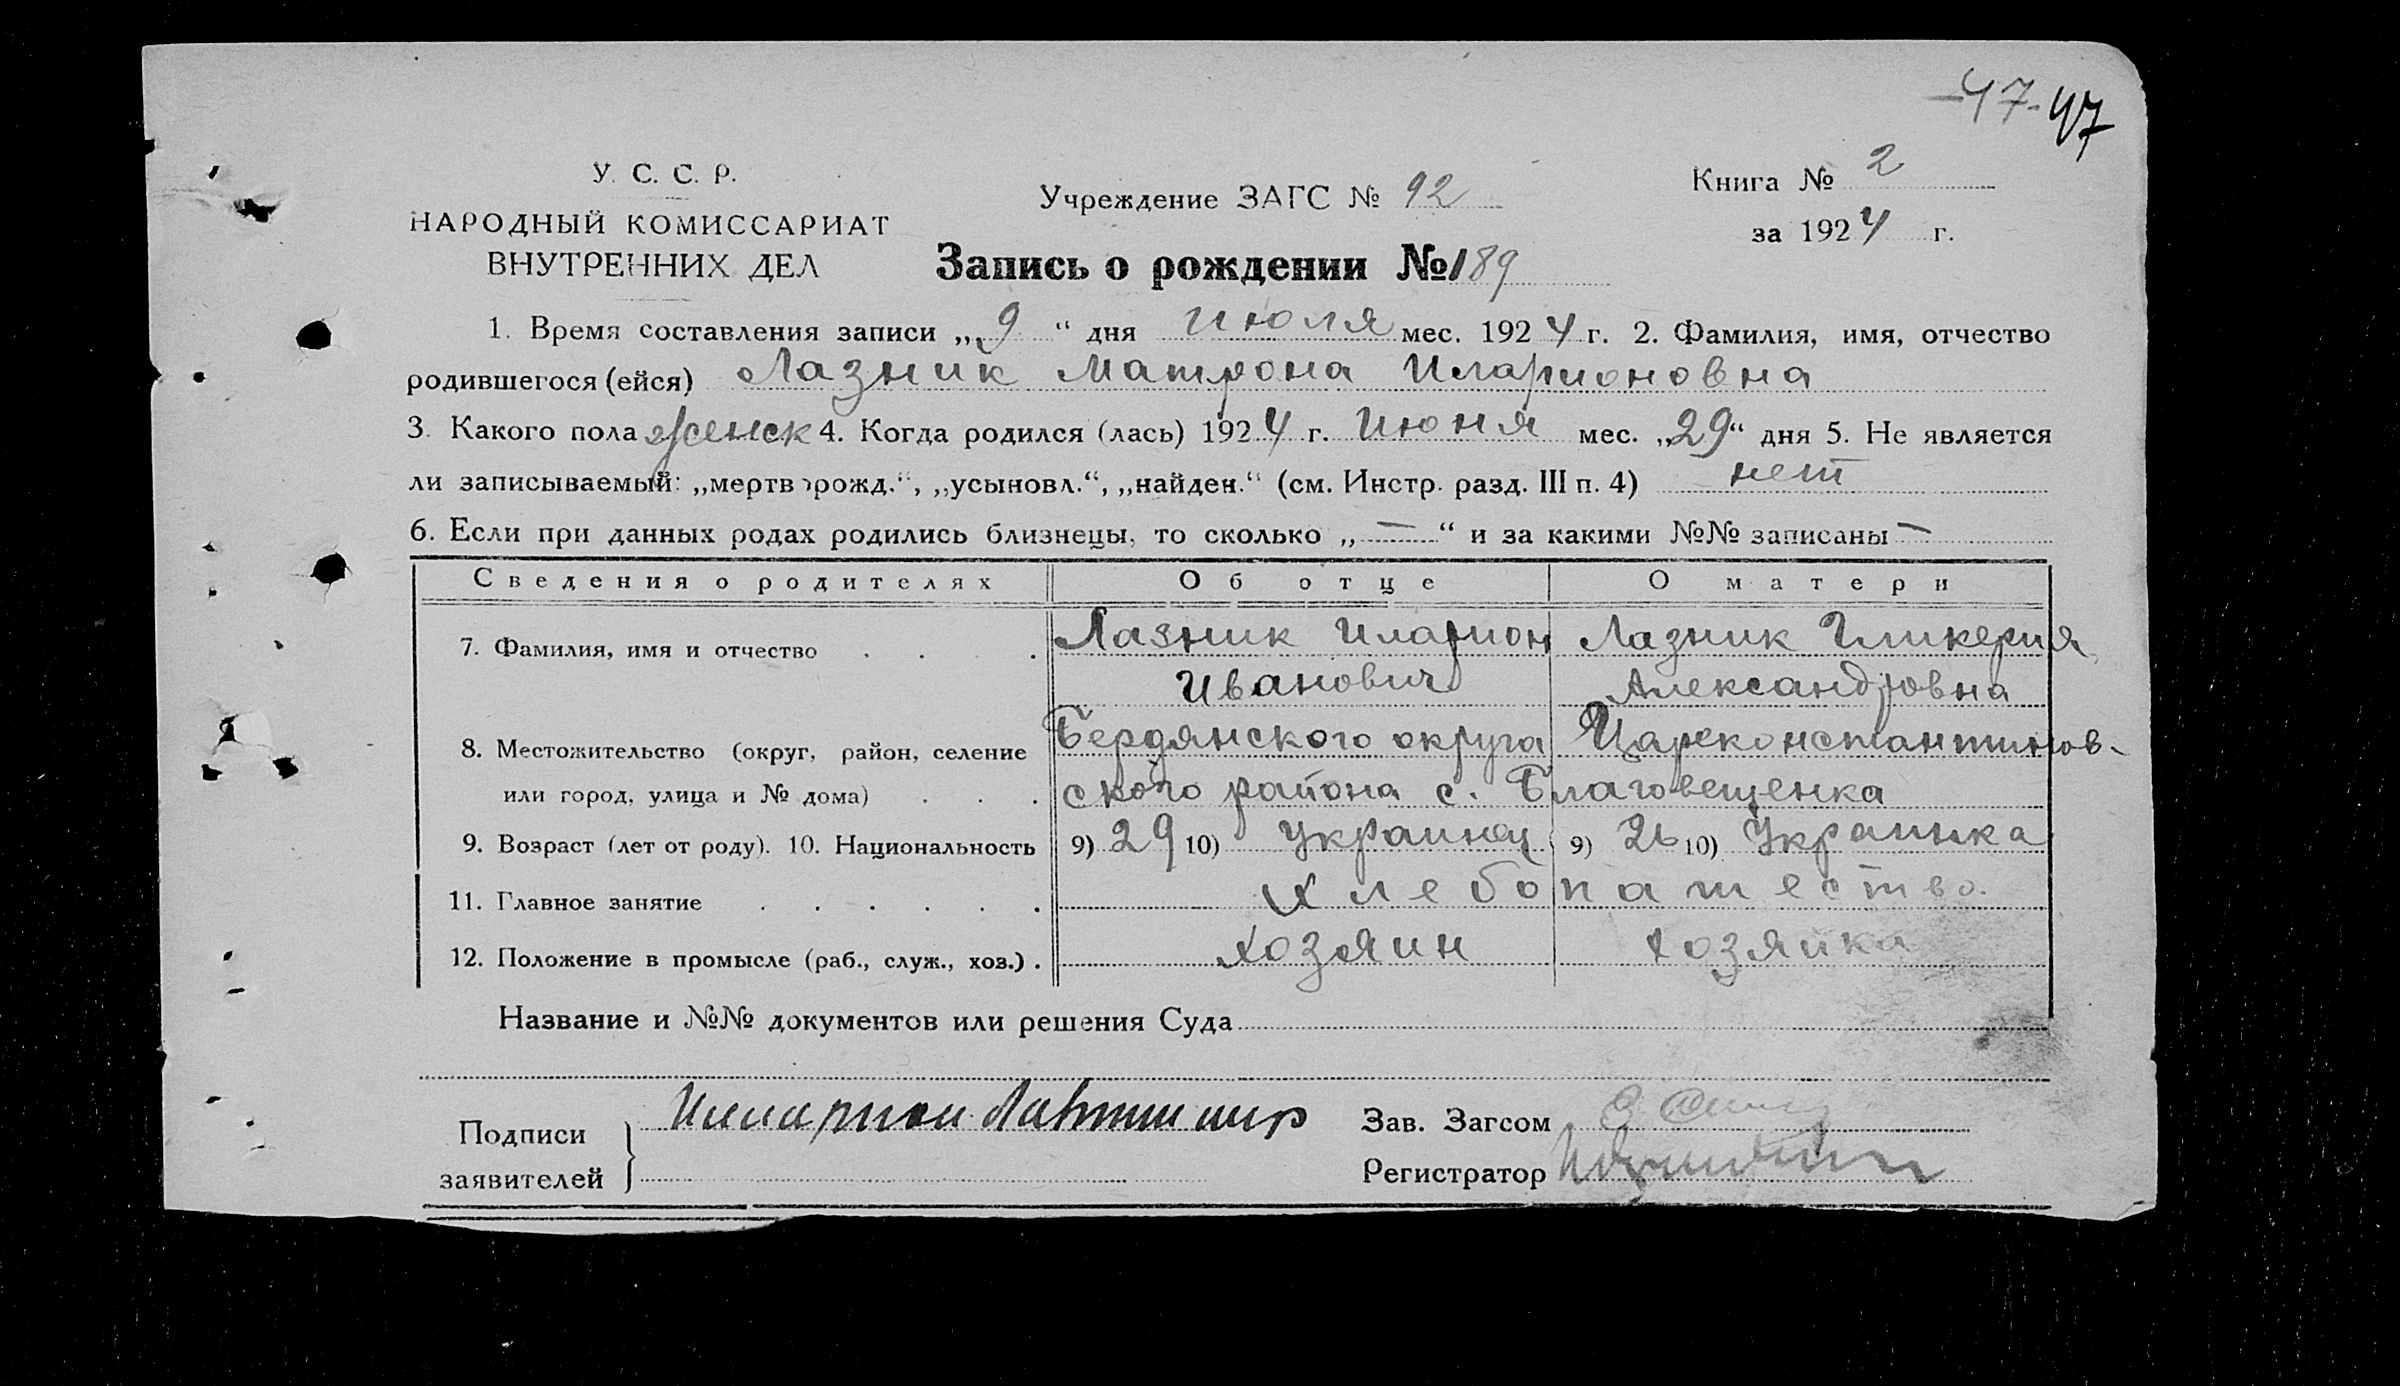 -47- 47
У. С. С. Р.
НАРОДНЫЙ КОМИССАРИАТ
ВНУТРЕННИХ ДЕЛ
Учреждение ЗАГС № 92
Книга № 2
за 1924 г.
Запись о рождении № 189
1. Время составления записи „9“ дня Июля мес. 1924 г. 2. Фамилия, имя, отчество
родившегося (ейся) Лазник Матрона Иларионовна
3. Какого пола женск 4. Когда родился (лась) 1924 г. Июня мес. „29“ дня 5. Не является
ли записываемый: „мертворожд.“, „усыновл.“, „найден.“ (см. Инстр. разд. III п. 4) нет
6. Если при данных родах родились близнецы, то сколько „—“ и за какими №№ записаны —
Сведения о родителях Об отце О матери
7. Фамилия, имя и отчество . . . Лазник Иларион Лазник Гликерия
Иванович Александровна
8. Местожительство (округ, район, селение Бердянского округа Цареконстантинов-
или город, улица и № дома) . . . ского района с. Благовещенка
9. Возраст (лет от роду). 10. Национальность 9) 29 10) Украинец 9) 26 10) Украинка
11. Главное занятие . . . . . . Хлебопашество.
12. Положение в промысле (раб., служ., хоз.) . Хозяин Хозяйка
Название и №№ документов или решения Суда
Подписи
заявителей
Илларион
Зав. Загсом
Регистратор